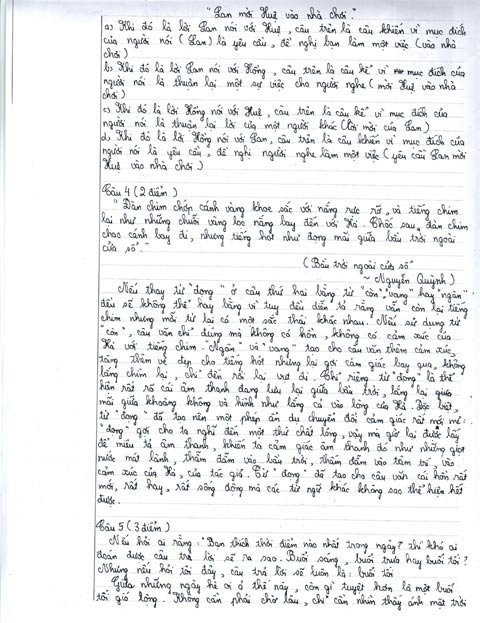 "Lan mời Huệ vào nhà chơi."
a) Khi đó là lời Lan nói với Huệ, câu trên là câu khiến vì mục đích
của người nói (Lan) là yêu cầu, đề nghị bạn làm một việc (vào nhà
chơi)
b) Khi đó là lời Lan nói với Hồng, câu trên là câu kể vì mục đích của
người nói là thuận lại một sự việc cho người nghe (mời Huệ vào nhà
chơi)
c) Khi đó là lời Hồng nói với Huệ, câu trên là câu kể vì mục đích của
người nói là thuận lại lời của một người khác (lời mời của Lan)
d) Khi đó là lời Hồng nói với Lan, câu trên là câu khiến vì mục đích của
người nói là yêu cầu, đề nghị người nghe làm một việc (yêu cầu Lan mời
Huệ vào nhà chơi)
Câu 4 (2 điểm)
"Đàn chim chớp cánh vàng khoe sắc với nắng rực rỡ, và tiếng chim
lại như những chuỗi vàng lọc nắng bay đến với Hà. Chốc sau, đàn chim
chao cánh bay đi, nhưng tiếng hót như đọng mãi giữa bầu trời ngoài
cửa sổ."
(Bầu trời ngoài cửa sổ
~ Nguyễn Quỳnh)
Nếu thay từ "đọng" ở câu thứ hai bằng từ "còn", "vang" hay "ngân"
đều sẽ không thể hay bằng vì tuy đều diễn tả rằng vẫn còn lại tiếng
chim nhưng mỗi từ lại có một sắc thái khác nhau. Nếu sử dụng từ
"còn", câu văn chỉ đúng mà không có hồn, không có cảm xúc của
Hà với tiếng chim. "Ngân" và "vang" tạo cho câu văn thêm cảm xúc,
tăng thêm vẻ đẹp cho tiếng hót nhưng lại gợi cảm giác bay qua, không
lắng chìm lại, chỉ đến rồi lại vụt đi. Chỉ riêng từ "đọng" là thể
hiện rất rõ cái âm thanh đang lưu lại giữa bầu trời, lắng lại giữa
mãi giữa khoảng không và hình như lắng cả vào lòng của Hà. Đặc biệt,
từ "đọng" đã tạo nên một phép ẩn dụ chuyển đổi cảm giác rất mới mẻ:
"đọng" gợi cho ta nghĩ đến một thứ chất lỏng, vậy mà giờ lại được lấy
để miêu tả âm thanh, khiến ta cảm giác âm thanh đó như những giọt
nước mát lành, thấm đẫm vào bầu trời, thấm đẫm vào tâm trí, vào
cảm xúc của Hà, của tác giả. Từ "đọng" đã tạo cho câu văn cái hồn rất
mới, rất hay, rất sống động mà các từ ngữ khác không sao thể hiện hết
được.
Câu 5 (3 điểm)
Nếu hỏi ai rằng: "Bạn thích thời điểm nào nhất trong ngày?" thì khó ai
đoán được câu trả lời sẽ ra sao. Buổi sáng, buổi trưa hay buổi tối?
Nhưng nếu hỏi tôi đây, câu trả lời sẽ luôn là: buổi tối
Giữa những ngày hè oi ả thế này, còn gì tuyệt hơn là một buổi
tối gió lộng. Không cần phải chờ lâu, chỉ cần nhìn thấy ánh mặt trời